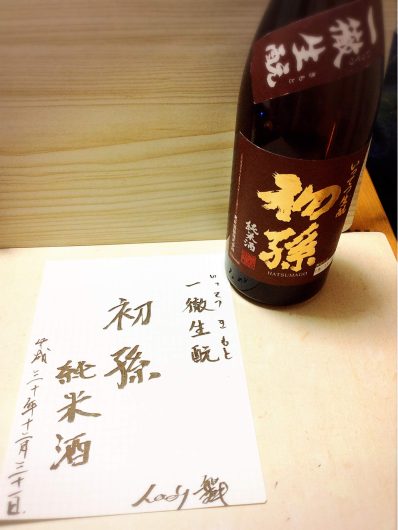 一徹生酛
きもと
いってつ生酛
初孫
純米酒
HATSUMAGO
いってつ きもと
一徹生酛
初孫
純米酒
平成三十年十二月三十一日
Lady